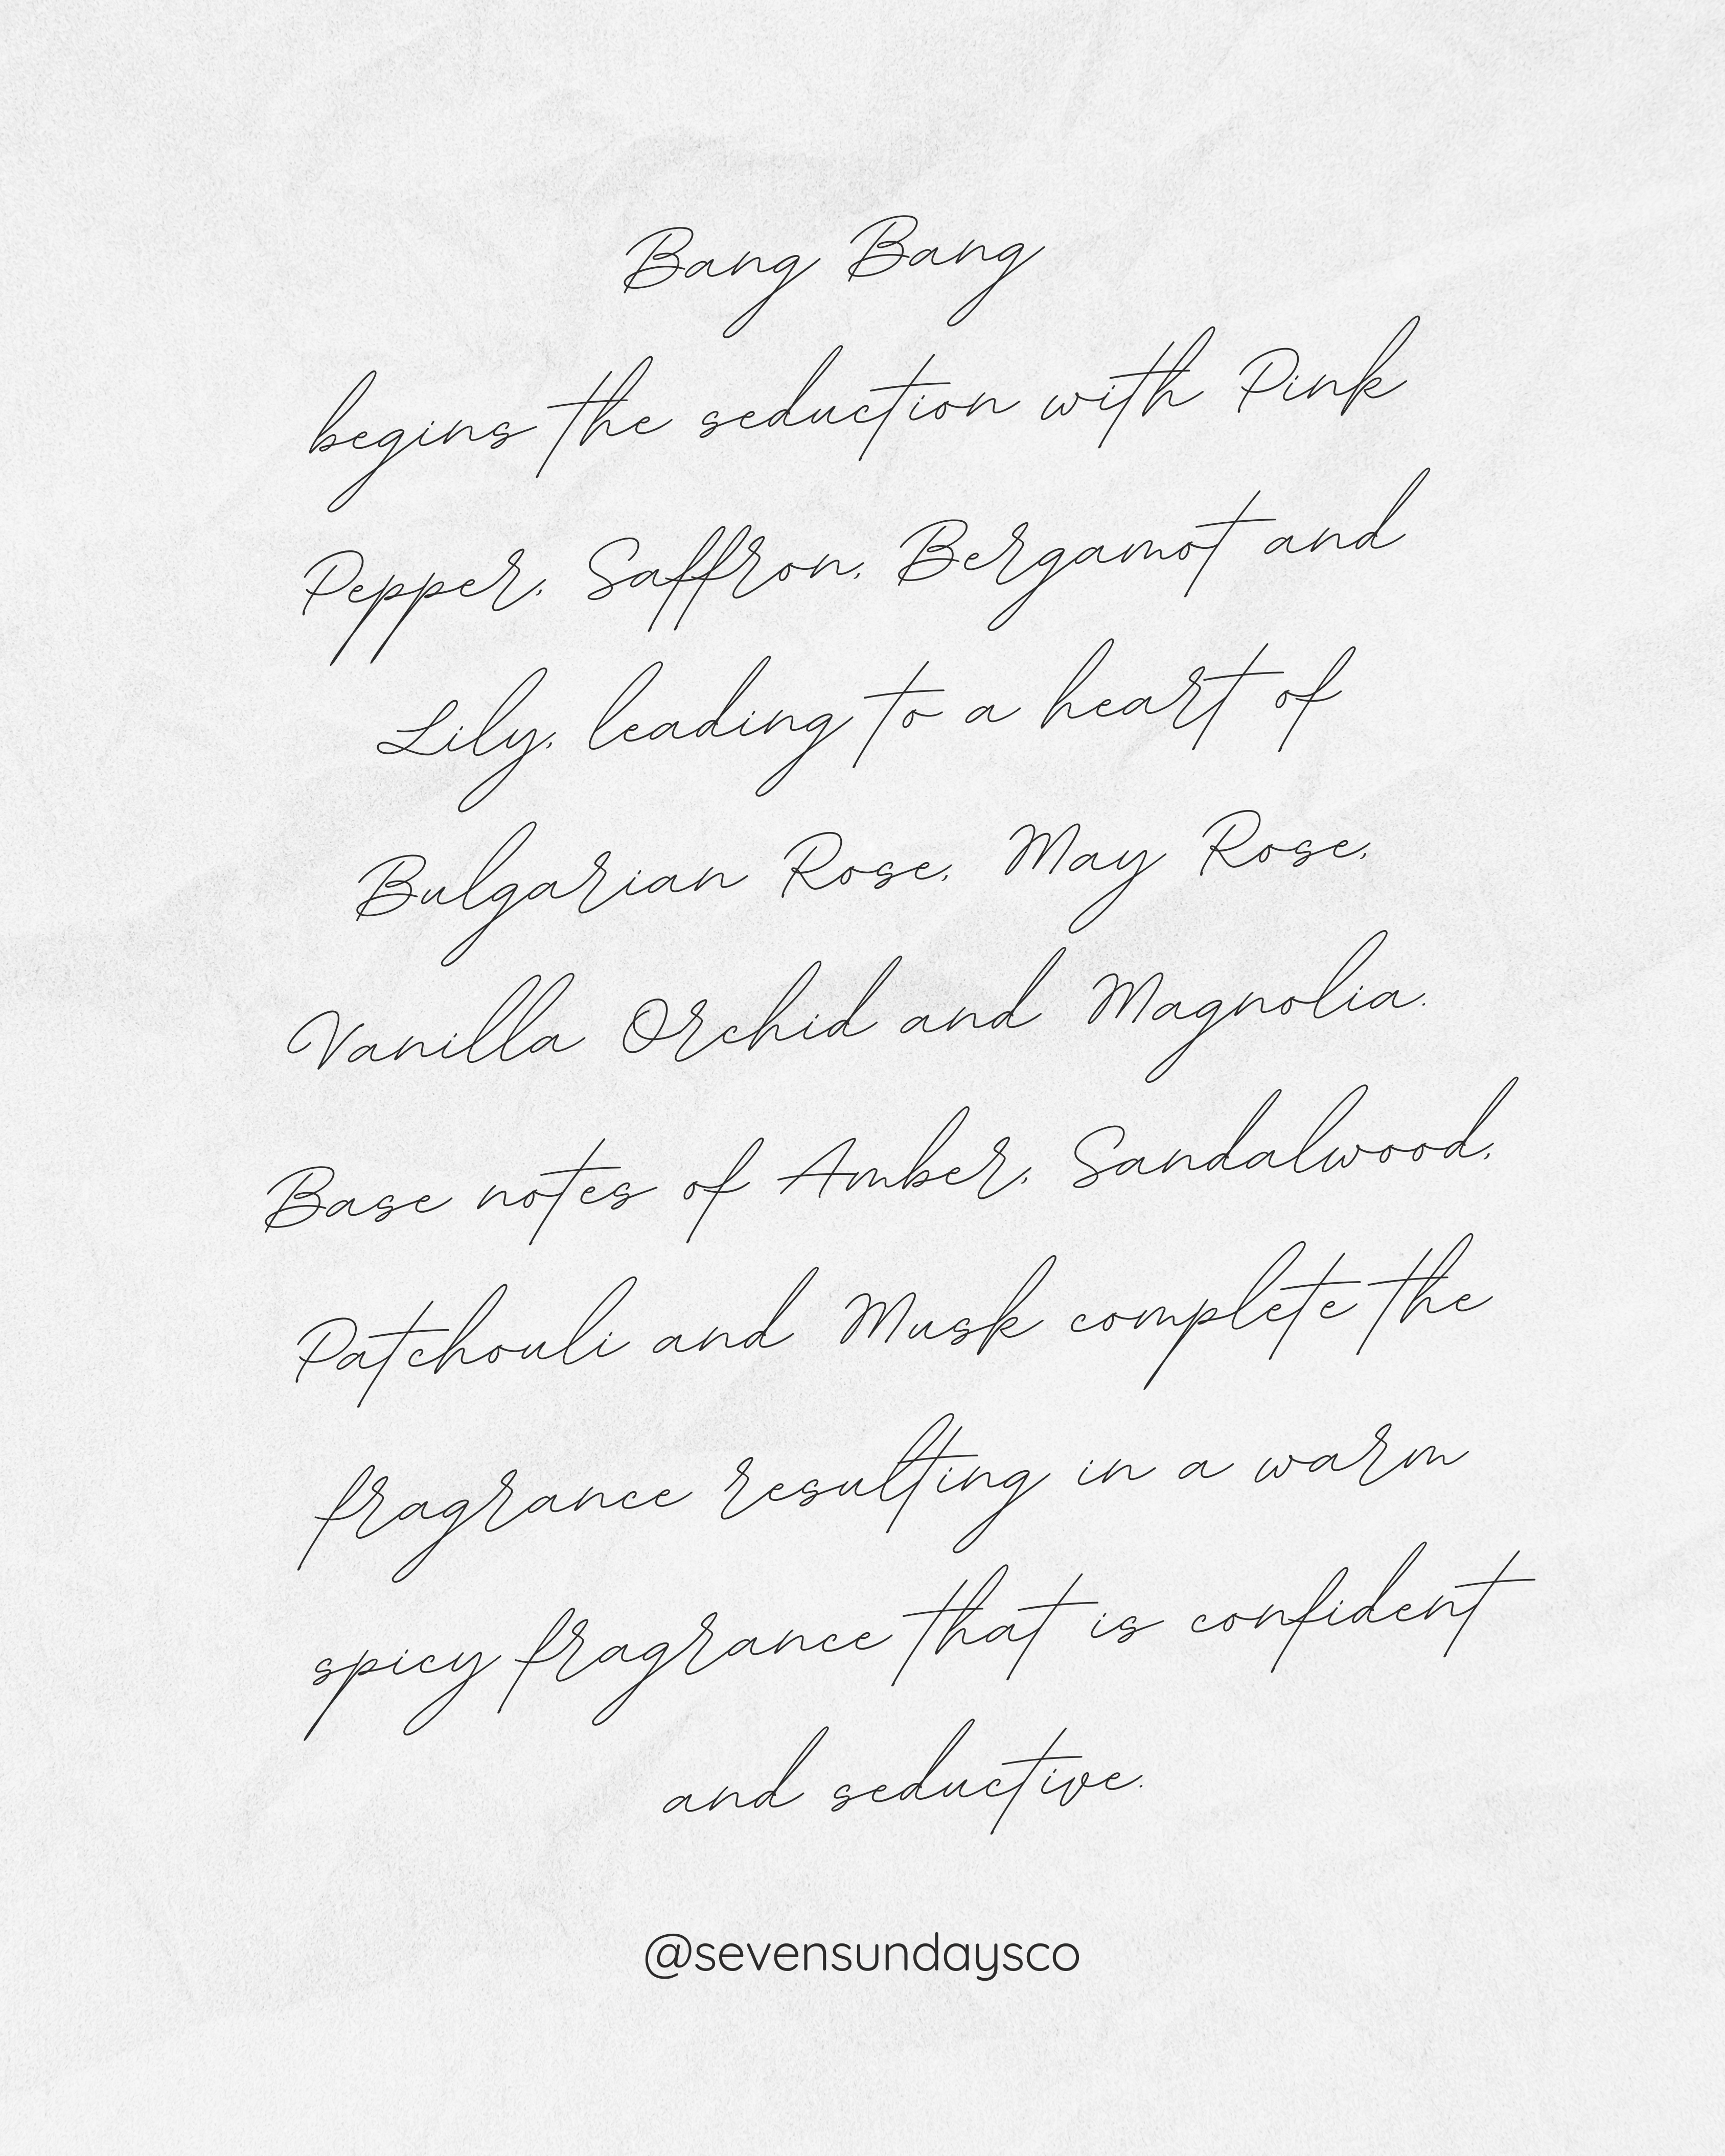 Bang Bang
begins the seduction with Pink
Pepper, Saffron, Bergamot and
Lily, leading to a heart of
Bulgarian Rose, May Rose,
Vanilla Orchid and Magnolia.
Base notes of Amber, Sandalwood,
Patchouli and Musk complete the
fragrance resulting in a warm
spicy fragrance that is confident
and seductive.
@sevensundaysco